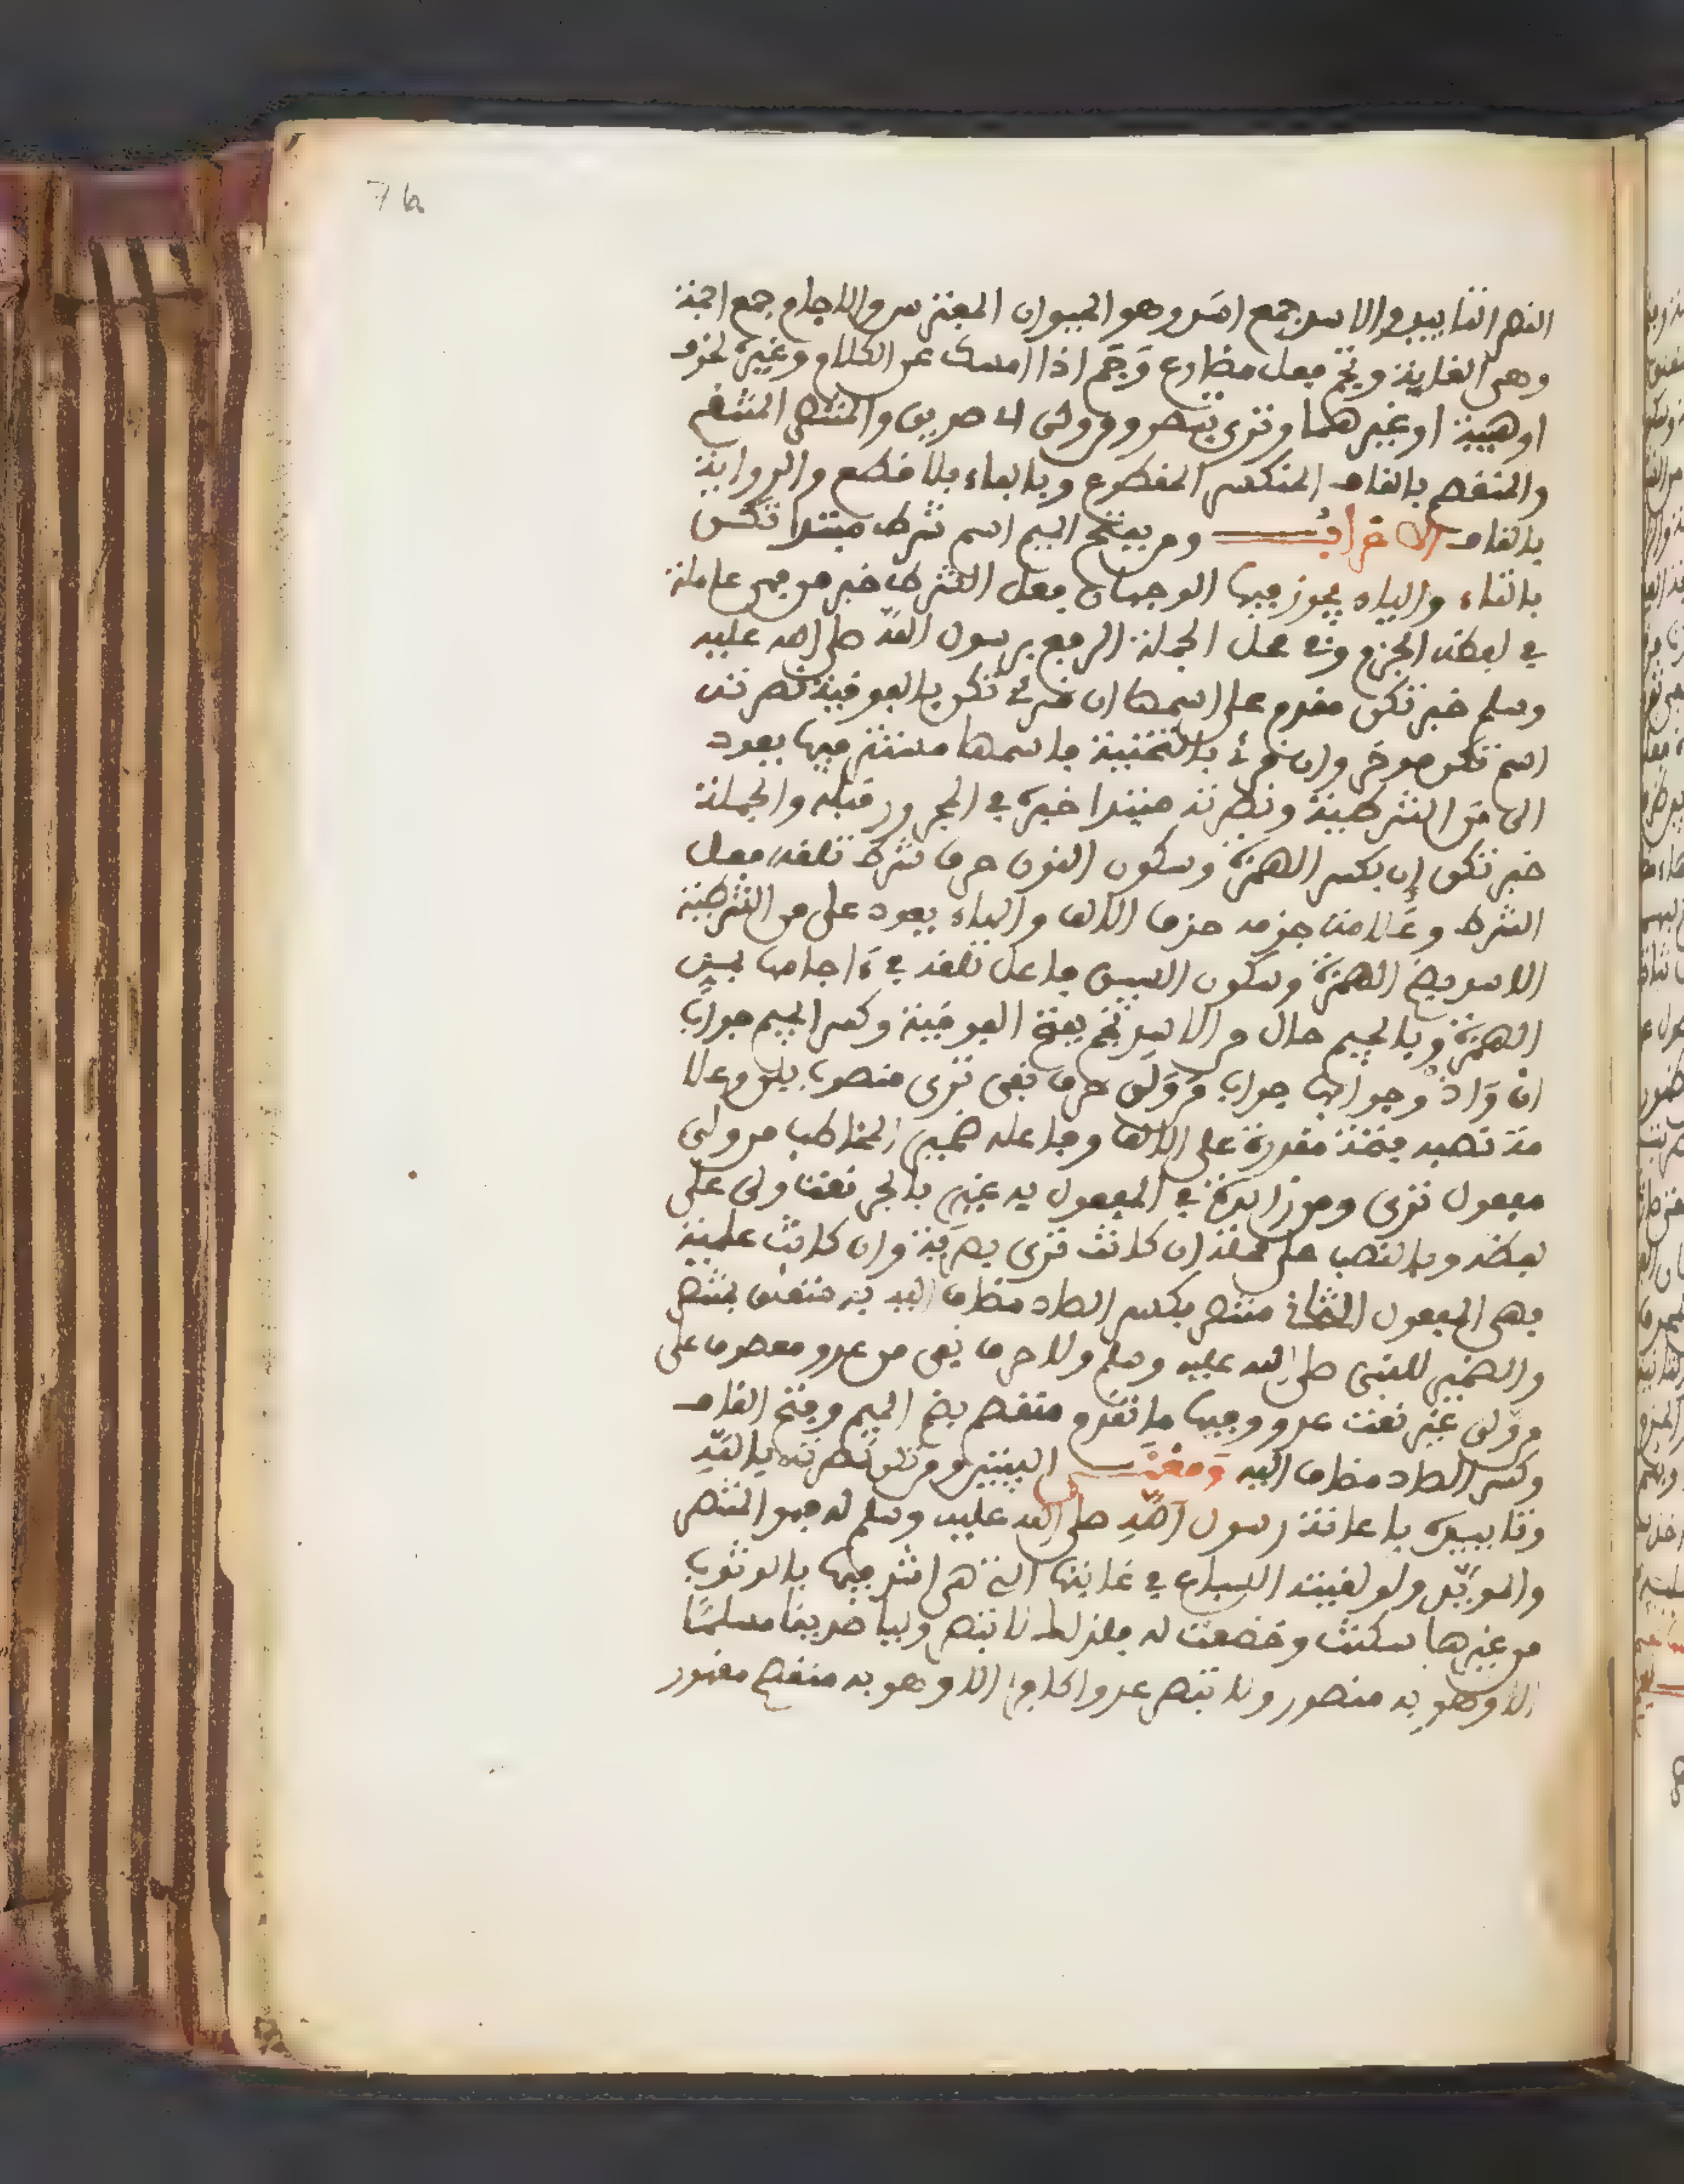 76
النصر التاييد والاسد جمع اسد وهو الحيوان المفترس والاجام جمع اجمة
وهي الغابة وتجم فعل مضارع وَجَم اذا امسك عن الكلام وغيره لخوف
او هيبة او غيرهما وترى تبصر وولى اي صديق والمنتصر المنتقم
والمنقصم بالقاف المنكسر المقطوع وبالفاء بلا قطع والرواية
بالقاف الاعراب ومن بفتح الميم اسم شرط مبتدا تكن
بالتاء والياء يجوز فيها الوجهان فعل الشرط خبر من فهي عاملة
في لفظه الجزم وفي محل الجملة الرفع برسول الله صلى الله عليه
وسلم خبر تكن مقدم على اسمها ان قرئ تكن بالفوقية نصرته
اسم تكن موخر وان قرئ بالتحتية فاسمها مستتر فيها يعود
الى من الشرطية ونصرته مبتدا خبره في المجرور قبله والجملة
خبر تكن إن بكسر الهمزة وسكون النون حرف شرط تلقه فعل
الشرط وعلامة جزمه حذف الالف والهاء يعود على من الشرطية
الاسد بضم الهمزة وسكون السين فاعل تلقه في ءاجامها بمد
الهمزة وبالجيم حال من الاسد تجم بفتح الفوقية وكسر الجيم جواب
ان وَان وجوابها جواب من وَلَن حرف نفي ترى منصوب بلن وعلا
مة نصبه فتحة مقدرة على الالف وفاعله ضمير المخاطب من ولي
مفعول ترى ومن زايدة في المفعول به غير بالجر نعت ولي على
لفظه وبالنصب على محله ان كانت ترى بصرية وان كانت علمية
فهي المفعول الثاني منتصر بكسر الصاد مضاف اليه به متعلق بمنتصر
والضمير للنبي صلى الله عليه وسلم ولا حرف نفي من عدو معطوف على
من ولي غير نعت عدو وفيها ما تقدم منقصم بضم الميم وفتح القاف
وكسر الصاد مضاف اليه ومعنى البيتين ومن تكن نصرته بالله
وتاييده باعانة رسول الله صلى الله عليه وسلم له فهو المنتصر
والمويد ولو لقيته السباع في غابتها التي هي اشد فيها بالوثوب
من غيرها سكنت وخضعت له فلذلك لا تبصر وليا صديقا مسلما
الا وهو به منصور ولا تبصر عدوا كافرا الا وهو به منقصم مقهور